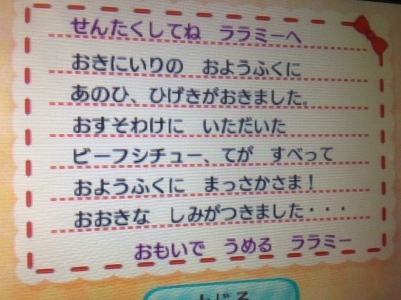 せんたくしてね　ララミーへ
おきにいりの　おようふくに
あのひ、ひげきがおきました。
おすそわけに　いただいた
ビーフシチュー、てが　すべって
おようふくに　まっさかさま！
おおきな　しみがつきました・・・
おもいで　うめる　ララミー
とじる